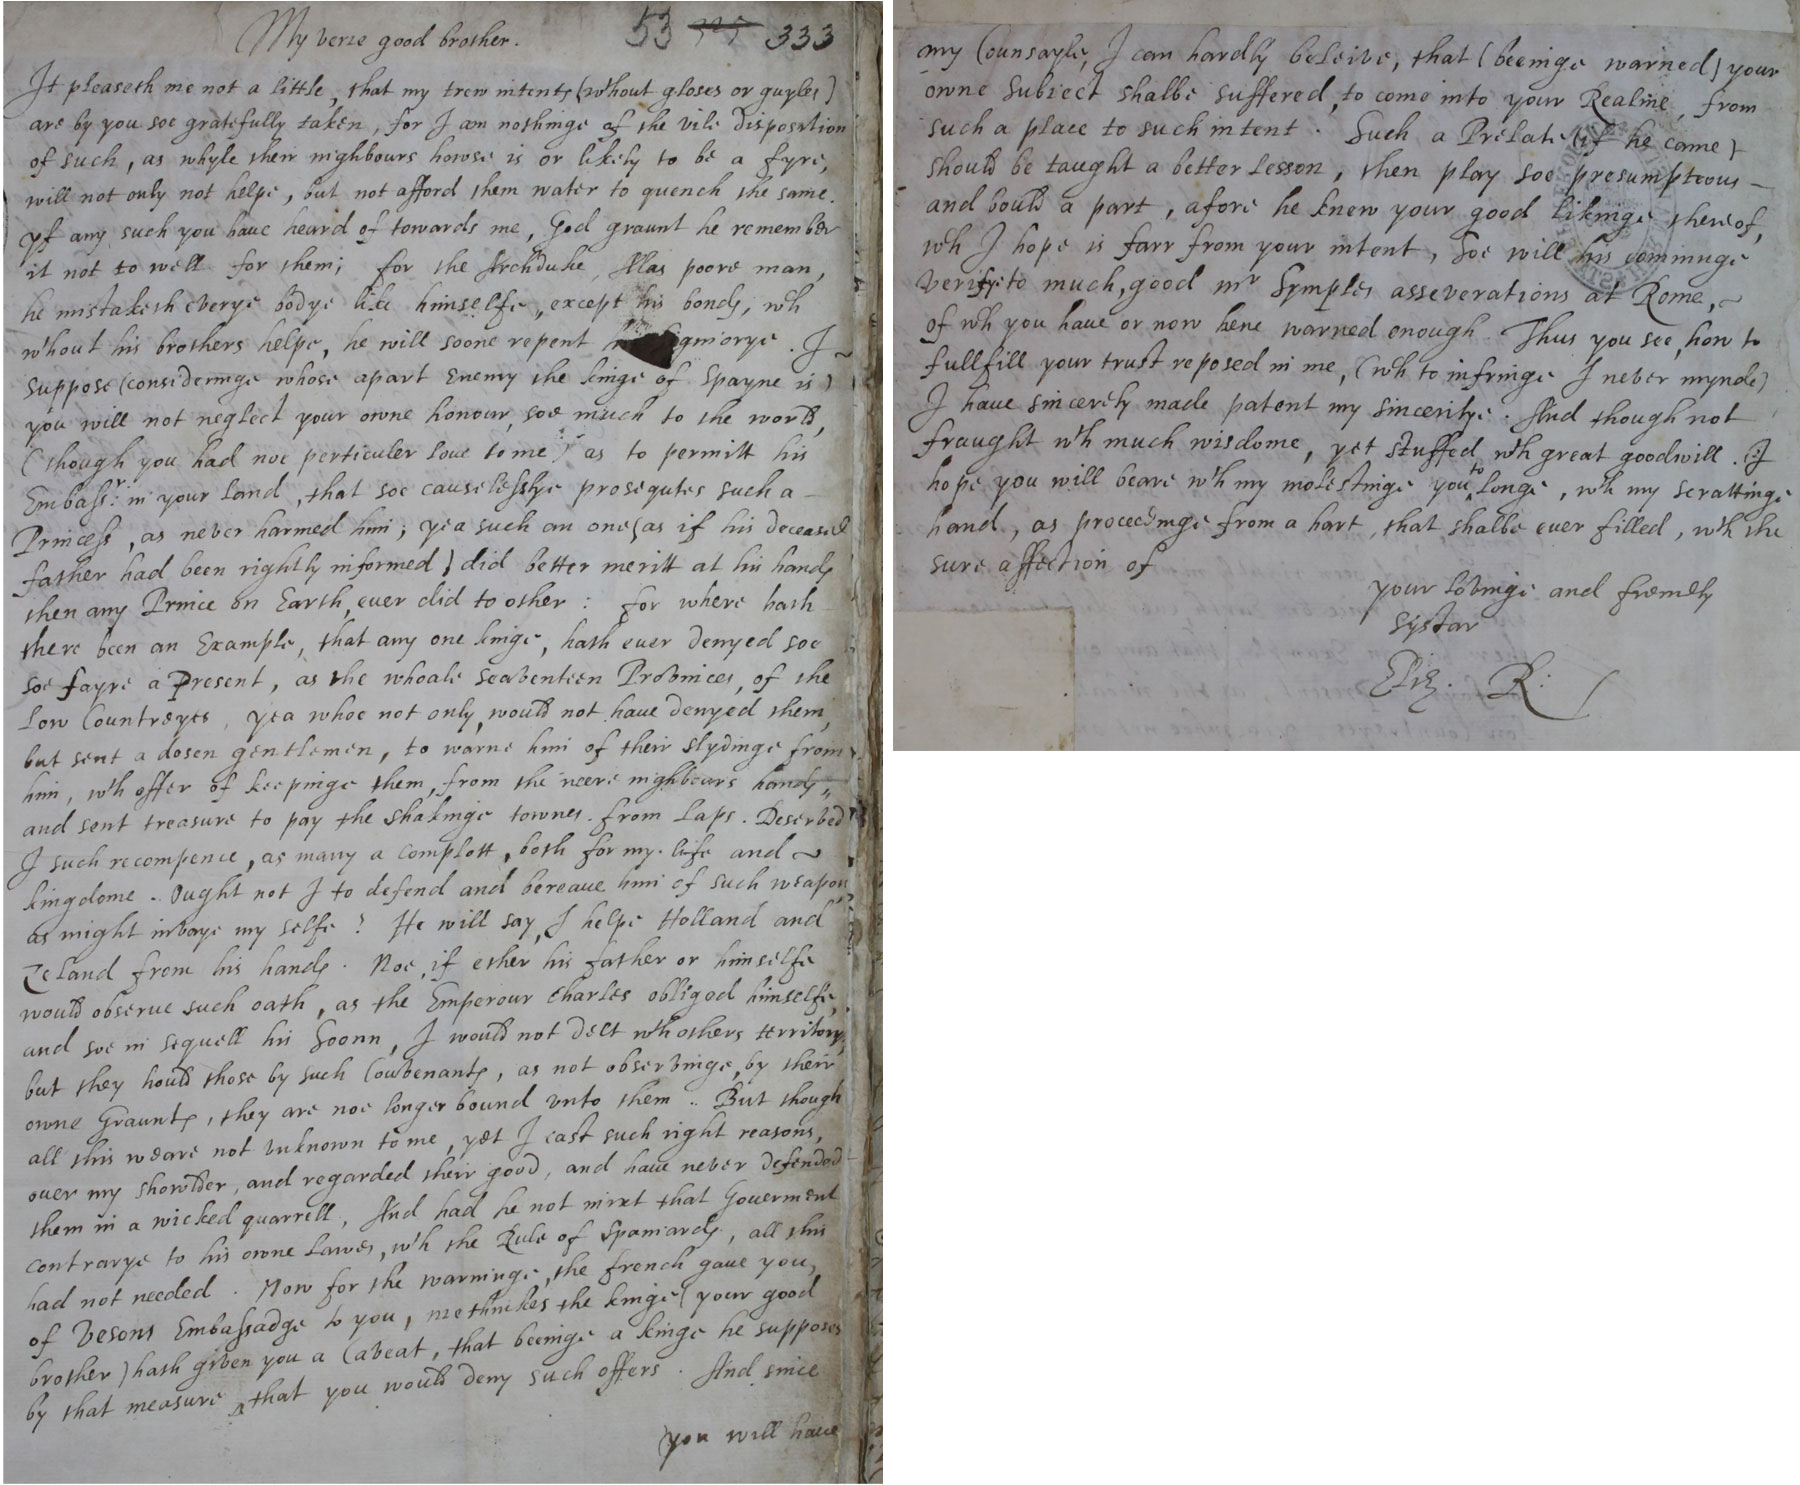 My verie good brother.
53 333
It pleaseth me not a little, that my trew intents (wthout gloses or guyles)
are by you soe gratefully taken, for I am nothinge of the vile disposition
of such, as whyle their nighbours howse is or likely to be a fyre,
will not only not helpe, but not afford them water to quench the same.
yf any such you haue heard of towards me, God graunt he remember
it not to well for them; for the Archduke, Alas poore man,
he mistaketh everye bodye like himselfe, except his bonds, wch
wthout his brothers helpe, he will soone repent . I
suppose (consideringe whose apart Enemy the kinge of Spayne is)
you will not neglect your owne honour, soe much to the world,
(though you had noe perticuler loue to me) as to permitt his
Embassr: in your land, that soe causelesslye prosequtes such a
Princess, as never harmed him; yea such an one (as if his deceased
father had been rightly informed) did better meritt at his hands
then any Prince on Earth, euer did to other: for where hath
there been an Example, that any one kinge, hath euer denyed soe
soe fayre a Present, as the whoale Seaventeen Provinces, of the
Low Countreyes, yea whoe not only, would not haue denyed them,
but sent a dosen gentlemen, to warne him of their slydinge from
him, wth offer of keepinge them, from the neere nighbours hands,
and sent treasure to pay the shakinge townes from Laps. Deserved
I such recompence, as many a complott, both for my life and
kingdome. Ought not I to defend and bereaue him of such weapons
as might invaye my selfe? He will say, I helpe Holland and
Zeland from his hands. Noe, if ether his father or himselfe
would observe such oath, as the Emperour Charles obliged himselfe,
and soe in sequell his Soonn, I would not delt wth others territory,
but they hould those by such Couvenants, as not observinge, by their
owne Graunts, they are noe longer bound vnto them. But though
all this weare not vnknown to me, yet I cast such right reasons,
ouer my showlder, and regarded their good, and haue never defended
them in a wicked quarrell, And had he not mixt that Gouerment
contrarye to his owne lawes, wth the Rule of Spaniards, all this
had not needed. Now for the warninge, the french gaue you,
of Vesons Embassadge to you, methinkes the kinge (your good
brother) hath given you a Caveat, that beeinge a kinge he supposes
by that measure, that you would deny such offers. And since
you will haue
my Counsayle, I can hardly beleive, that (beeinge warned) your
owne Subiect shalbe suffered, to come into your Realme, from
such a place to such intent. Such a Prelate (if he came)
should be taught a better lesson, then play soe presumpteous
and bould a part, afore he knew your good likinge thereof,
wch I hope is farr from your intent, Soe will his comminge
verifye to much, good mr Symples asseverations at Rome,
of wch you haue or now bene warned enough. Thus you see, how to
fullfill your trust reposed in me, (wch to infringe I never mynde)
I haue sincerely made patent my sinceritye. And though not
fraught wth much wisdome, yet stuffed wth great goodwill. I
hope you will beare wth my molestinge you to longe, wth my scrattinge
hand, as proceedinge from a hart, that shalbe euer filled, wth the
sure affection of
your lovinge and frendly
Systar
Eliz. R: